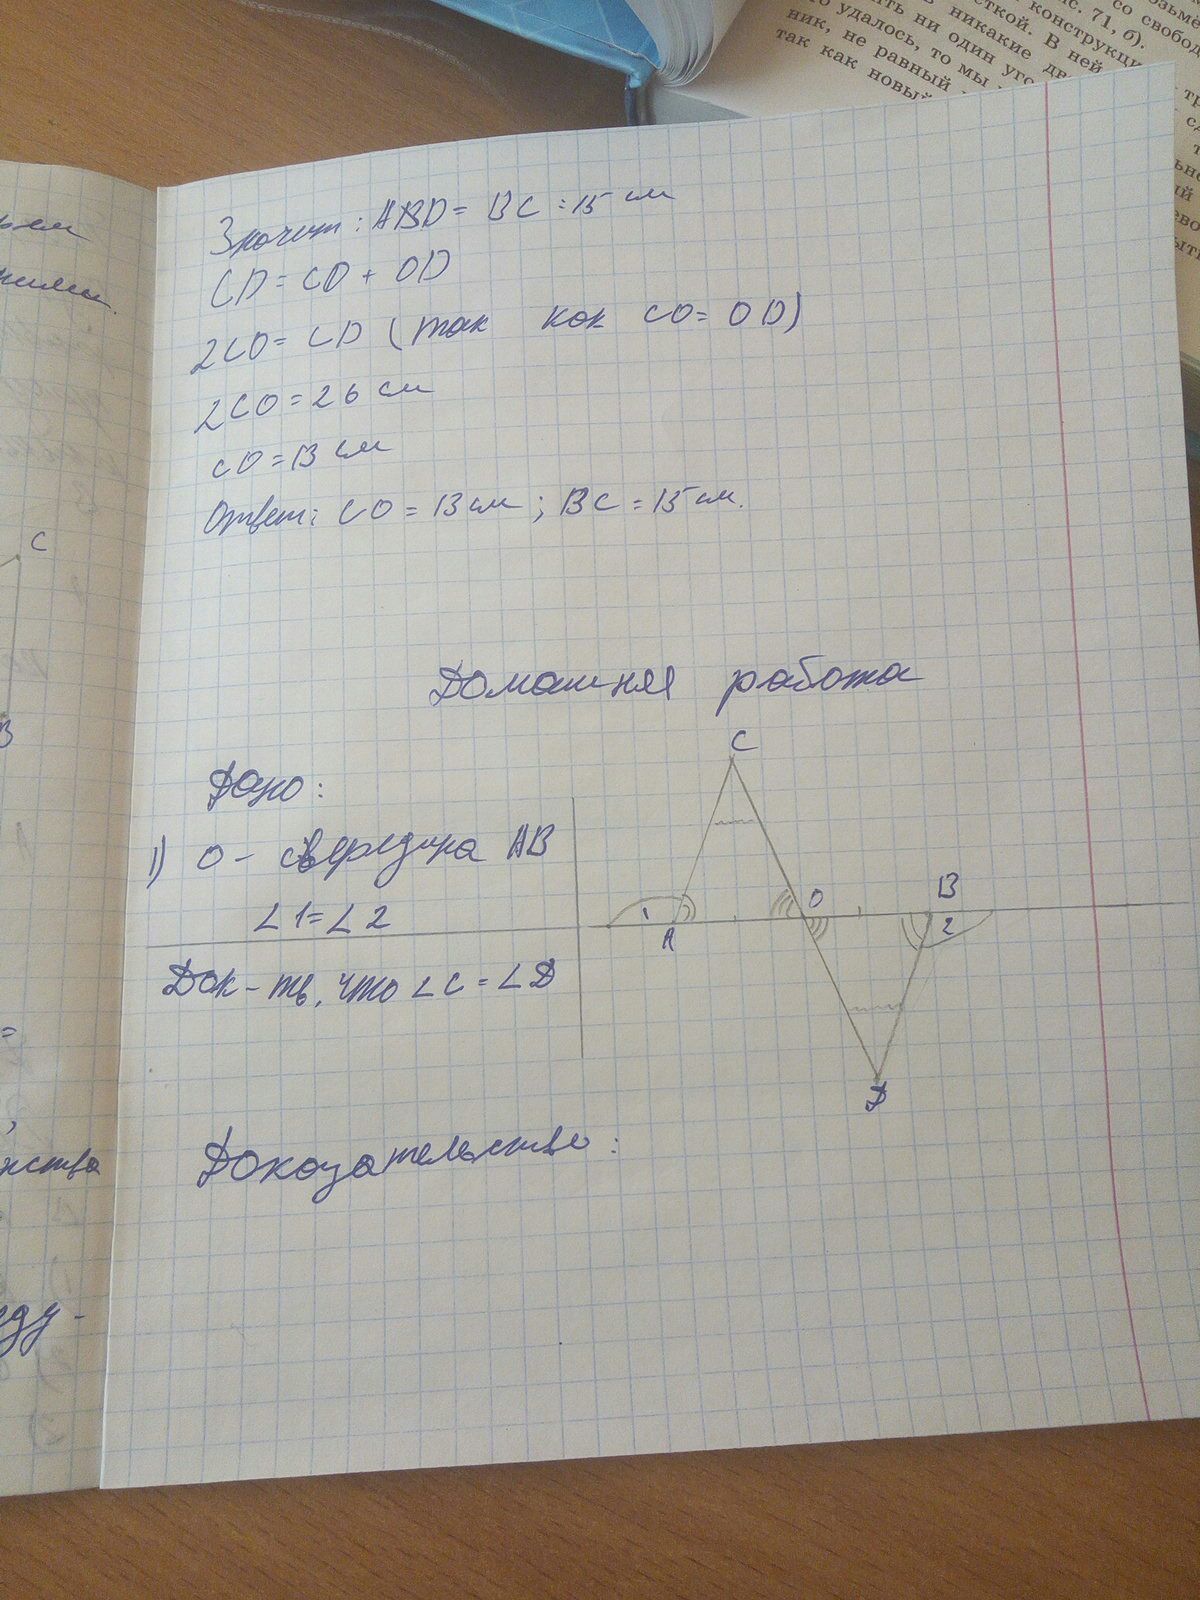 Значит: ABD = BC = 15 см
CD = CO + OD
2CO = CD (так как CO = OD)
2CO = 26 см
CO = 13 см
Ответ: CO = 13 см; BC = 15 см.
Домашняя работа
Дано:
1) O - середина AB
∠1 = ∠2
Док-ть, что ∠C = ∠D
C
1
A
O
B
2
D
Доказательство:
C
B
=
нства
еду-
71, б).
со свобод
конструкци
никакие дв
сткой. В ней
ни один уго
удалось, то мы
ник, не равный
так как новый